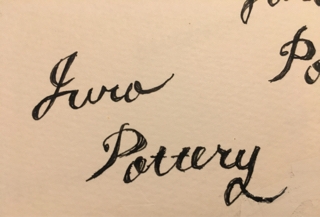 Juro
Pottery